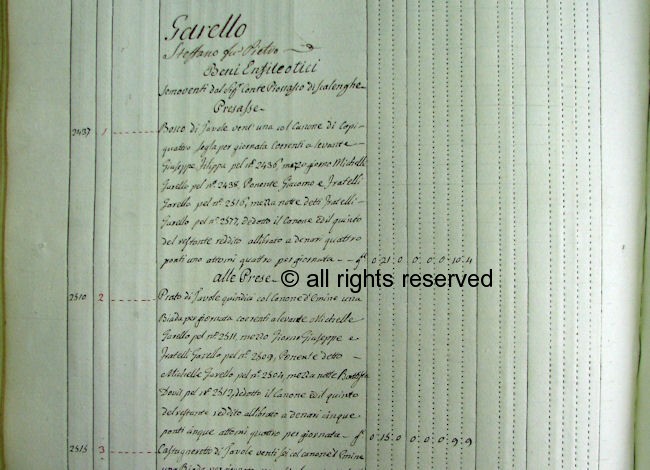 Garello
Steffano fu Pietro
Beni Enfiteotici
smoventi dal Sig.r Conte Piossasco di Scalenghe
Presasse
2437 1 Bosco di Tavole vent'una col Canone di Copi
quattro segla per giornata Coerenti a levante
Giuseppe Filippa pel n.º 2436, mezzo giorno Michell
Garello pel n.º 2438, Ponente, Giacomo e Fratelli
Garello pel n.º 2516, mezza notte detti Fratelli
Garello pel n.º 2577, dedotto il Canone ed il quinto
del restante reddito allibrato a denari quattro
ponti uno attomi quattro per giornata - - g.te 0:21:0 0:0:0:10:4
alle Prese
© all rights reserved
2510 2 Prato di Tavole quindici col Canone d'Emine una
Biada per giornata coerenti a levante Michelle
Garello pel n.º 2511, mezzo Giorno Giuseppe e
Fratelli Garello pel n.º 2509, Ponente detto
Michelle Garello pel n.º 2504, mezza notte Battista
pel n.º 2512, dedotto il Canone ed il quinto
del restante reddito allibrato a denari cinque
ponti cinque attomi quattro per giornata - g.te 0:15:0 0:0:0:9:9
2515 3 Castagneretto di Tavole venti sei col canone d'Emine
una Biada per